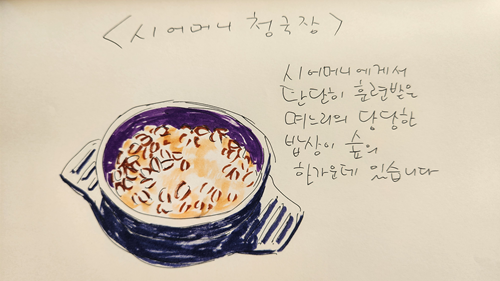 <시어머니 청국장>
시어머니에게서
단단히 훈련받은
며느리의 당당한
밥상이 숲의
한가운데 있습니다